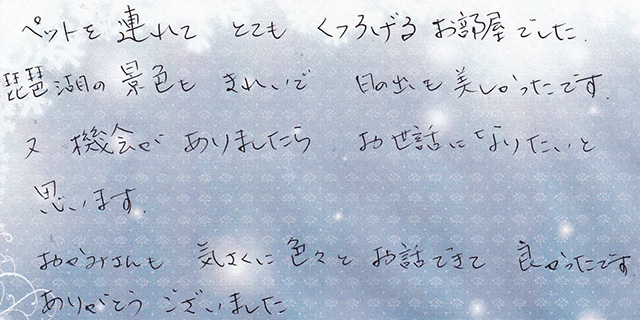 ペットを連れて とても くつろげる お部屋でした.
琵琶湖の 景色も きれいで 日の出も 美しかったです.
又 機会が ありましたら お世話に なりたいと
思います.
おかみさんも 気さくに 色々と お話できて 良かったです.
ありがとう ございました